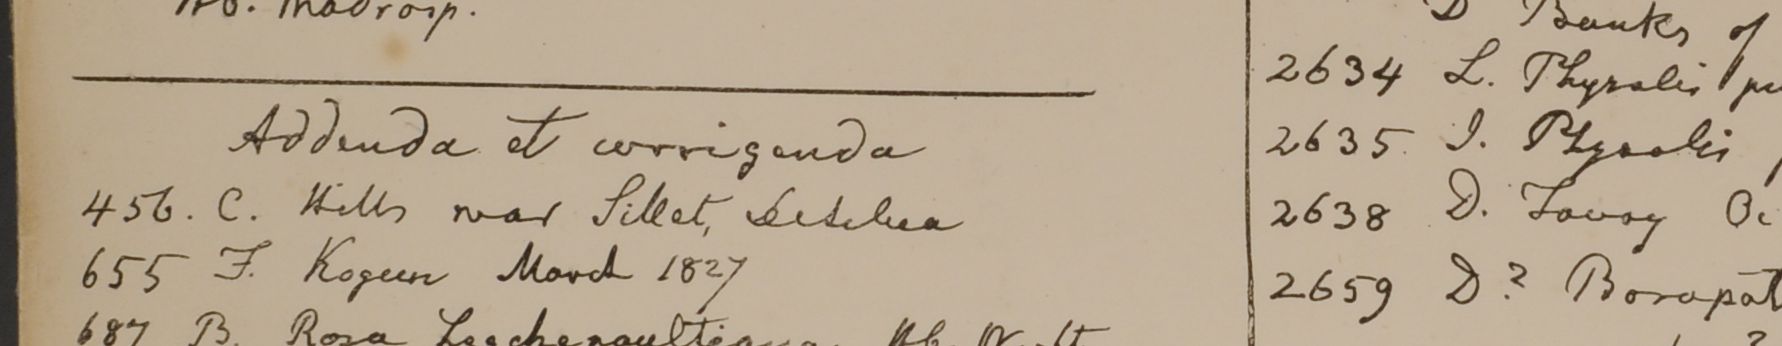 Hb. Madrasp.
Addenda et corrigenda
456. C. Hills near Sillet,
655 F. Kogeun March 1827
687 B. Rosa Leschenaultiana. Hb. Wight
D Banks of
2634 L. Physalis
2635 I. Physalis
2638 D. Tavoy
2659 D?